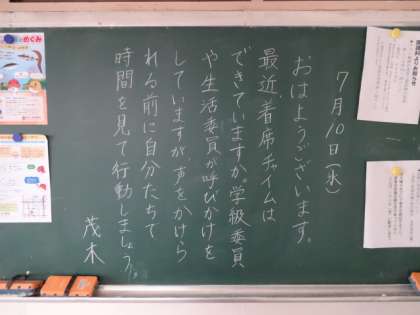 7月10日(水)
おはようございます。
最近、着席チャイムは
できていますか。学級委員
や生活委員が呼びかけを
していますが、声をかけら
れる前に自分たちで
時間を見て行動しましょう。
茂木
めぐみ